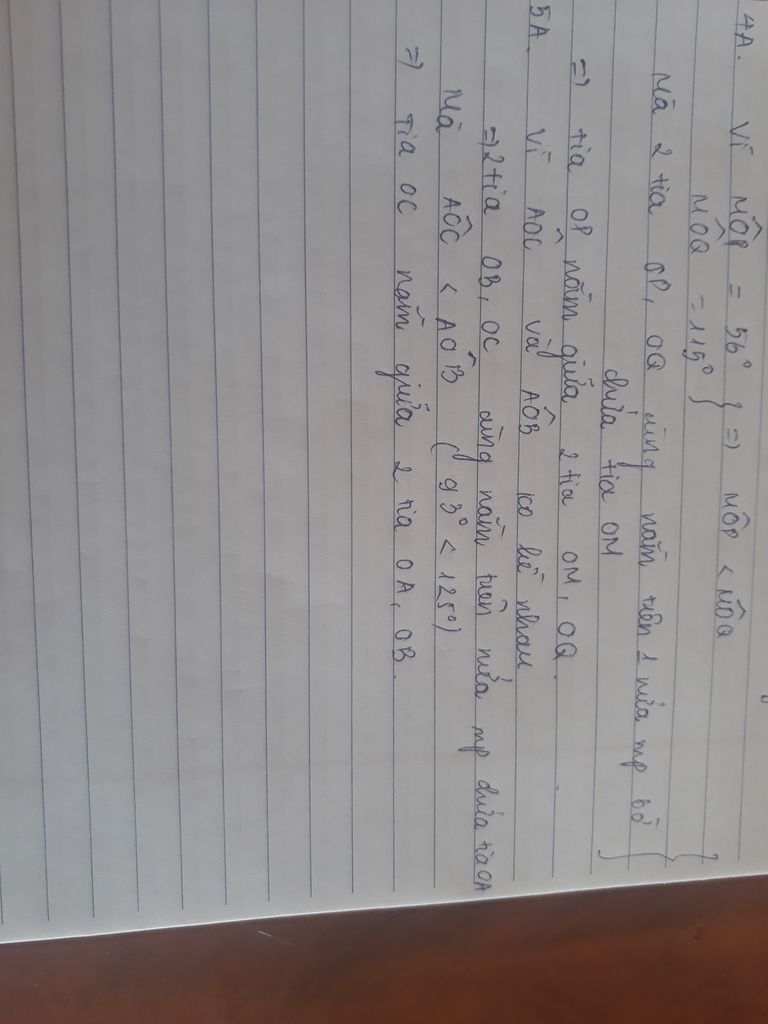 4A. Vì MÔP = 56° } => MÔP < MÔQ
MÔQ = 115° }
Mà 2 tia OP, OQ cùng nằm trên 1 nửa mp bờ
chứa tia OM
=> tia OP nằm giữa 2 tia OM, OQ.
5A. Vì AOC và AÔB ko kề nhau
=> 2 tia OB, OC cùng nằm trên nửa mp chứa tia OA
Mà AÔC < AÔB (93° < 125°)
=> Tia OC nằm giữa 2 tia OA, OB.